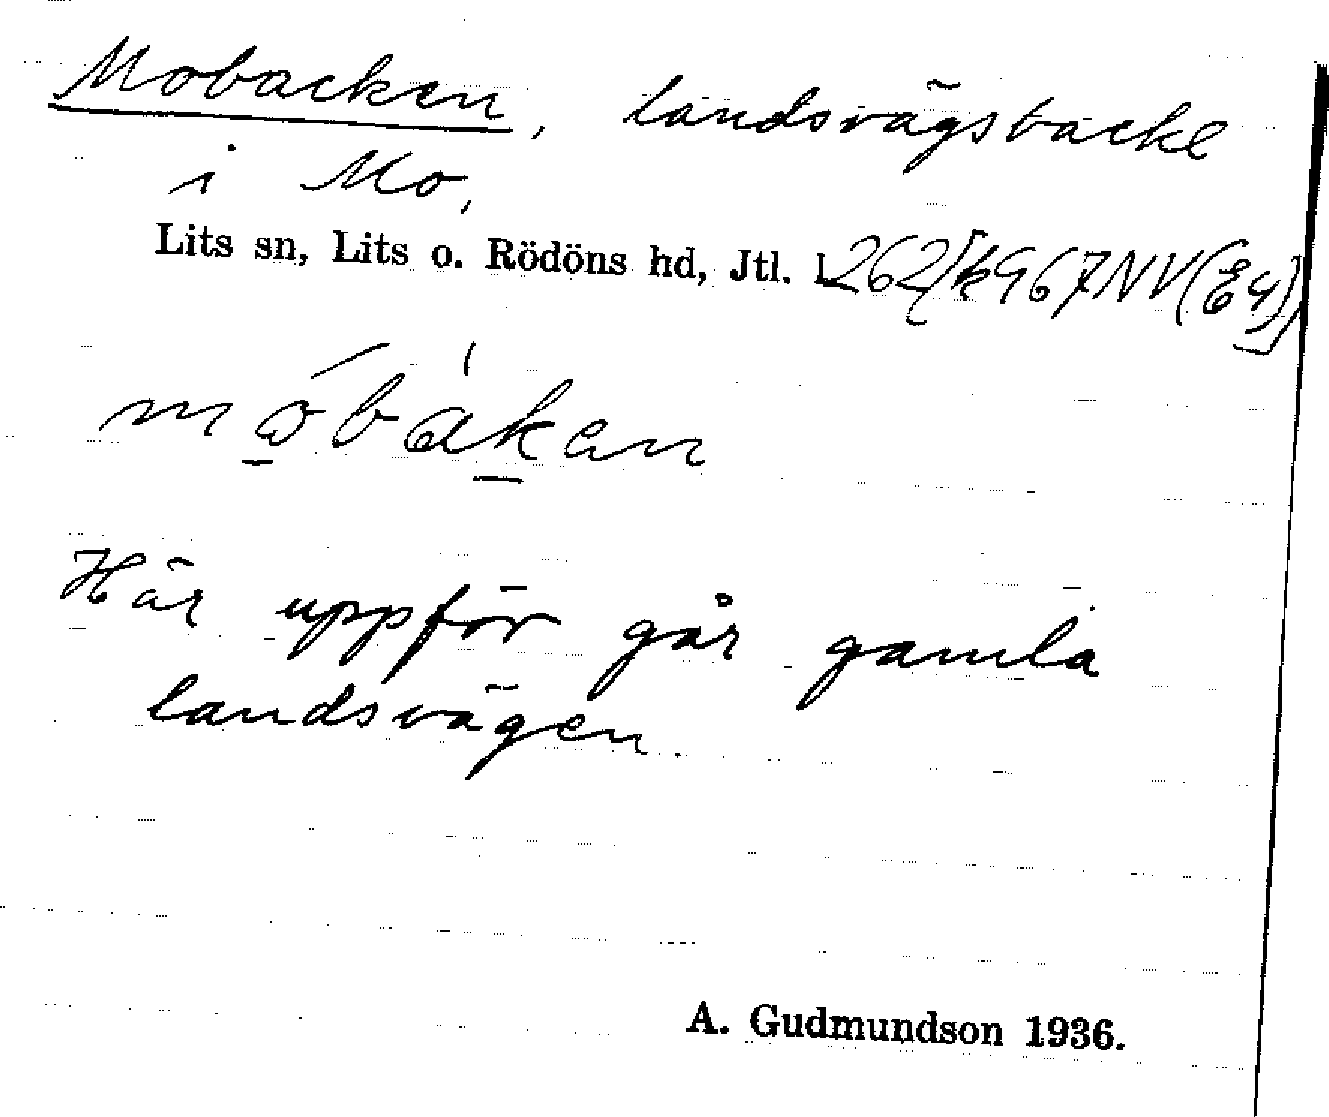 Mobacken, landsvägsbacke
i Mo,
Lits sn, Lits o. Rödöns hd, Jtl.
Här uppför går gamla
landsvägen.
A. Gudmundson 1936.